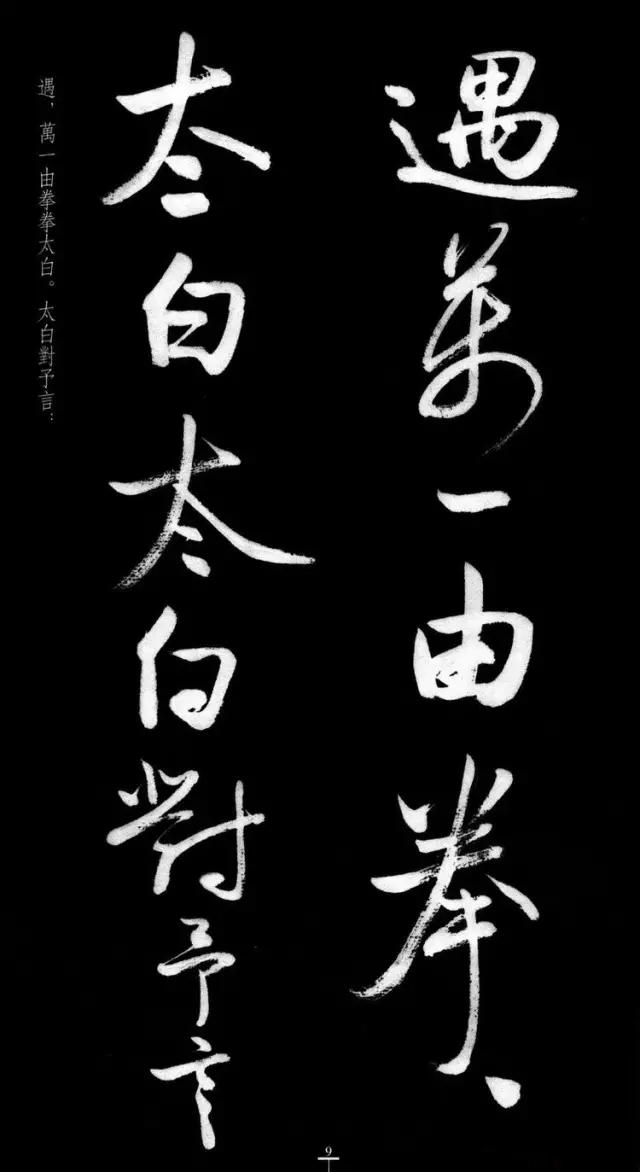 遇萬一由拳〻
太白太白對予言
遇，萬一由拳拳太白。太白對予言：
9